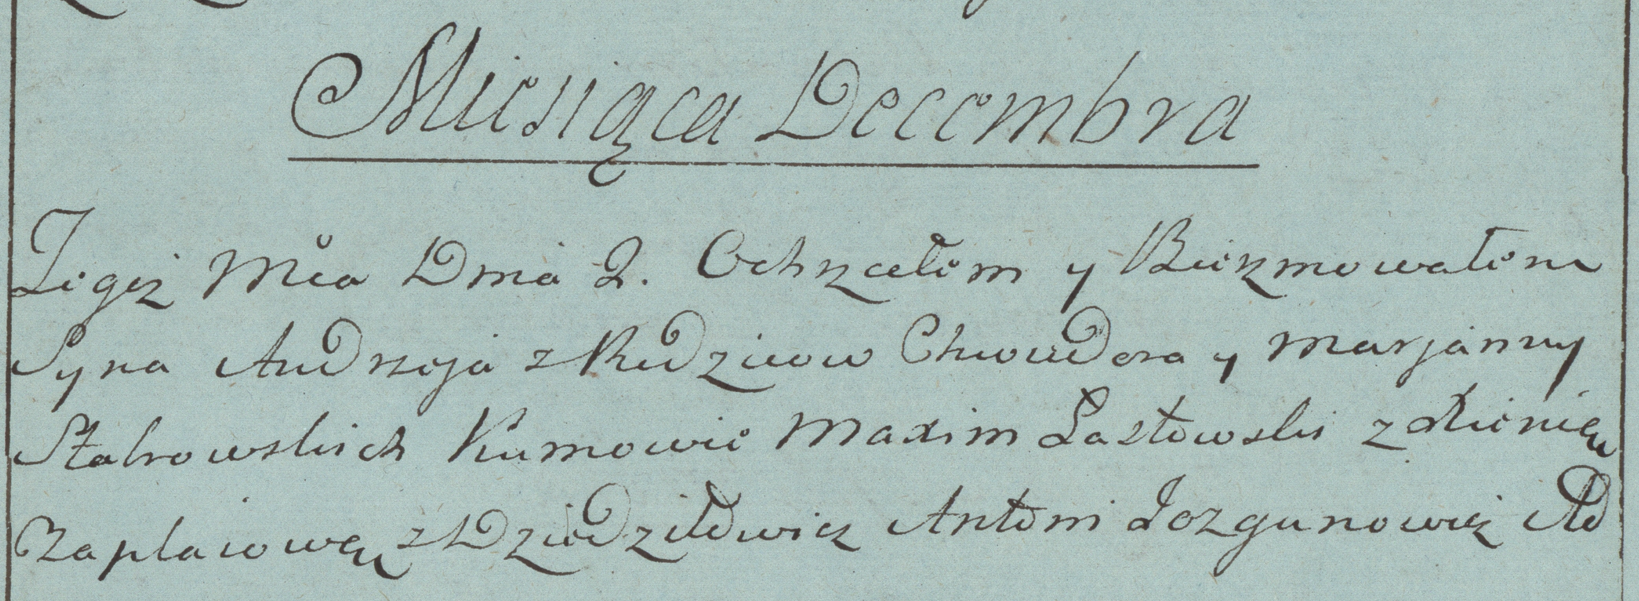 Miesiąca Decembra
Tegoż Mca Dnia 2. Ochrzcełem y Bierzmowałem
Syna Andrzeja z Rodziców Chwiedora y Marjanny
Stabrowskich Kumowie Maxim Łastowski z Xienią
Czaplaiową z Dziedziłowicz Antoni Jozgunowicz AD